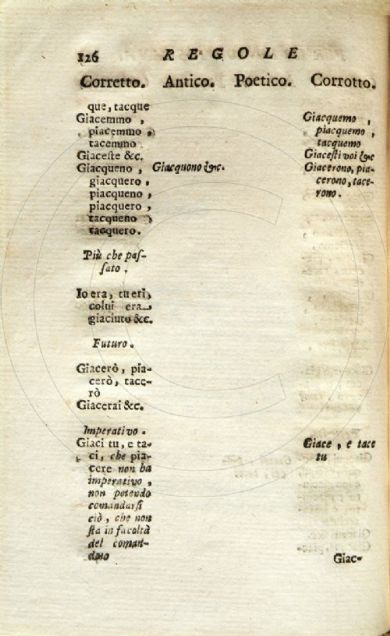 126 REGOLE
Corretto. Antico. Poetico. Corrotto.
que, tacque
Giacemmo, Giacquemo,
piacemmo, piacquemo,
tacemmo tacquemo
Giaceste &c. Giacesti voi &c.
Giacqueno, Giacquono &c. Giacerono, pia-
giacquero, cerono, tace-
piacqueno, rono.
piacquero,
tacqueno,
tacquero.
Più che pas-
sato.
Io era, tu eri,
colui era
giaciuto &c.
Futuro.
Giacerò, pia-
cerò, tace-
rò
Giacerai &c.
Imperativo.
Giaci tu, e ta- Giace, e tace
ci, che pia- tu
cere non ha
imperativo,
non potendo
comandarsi
ciò, che non
sta in facoltà
del coman-
dato
Giac-